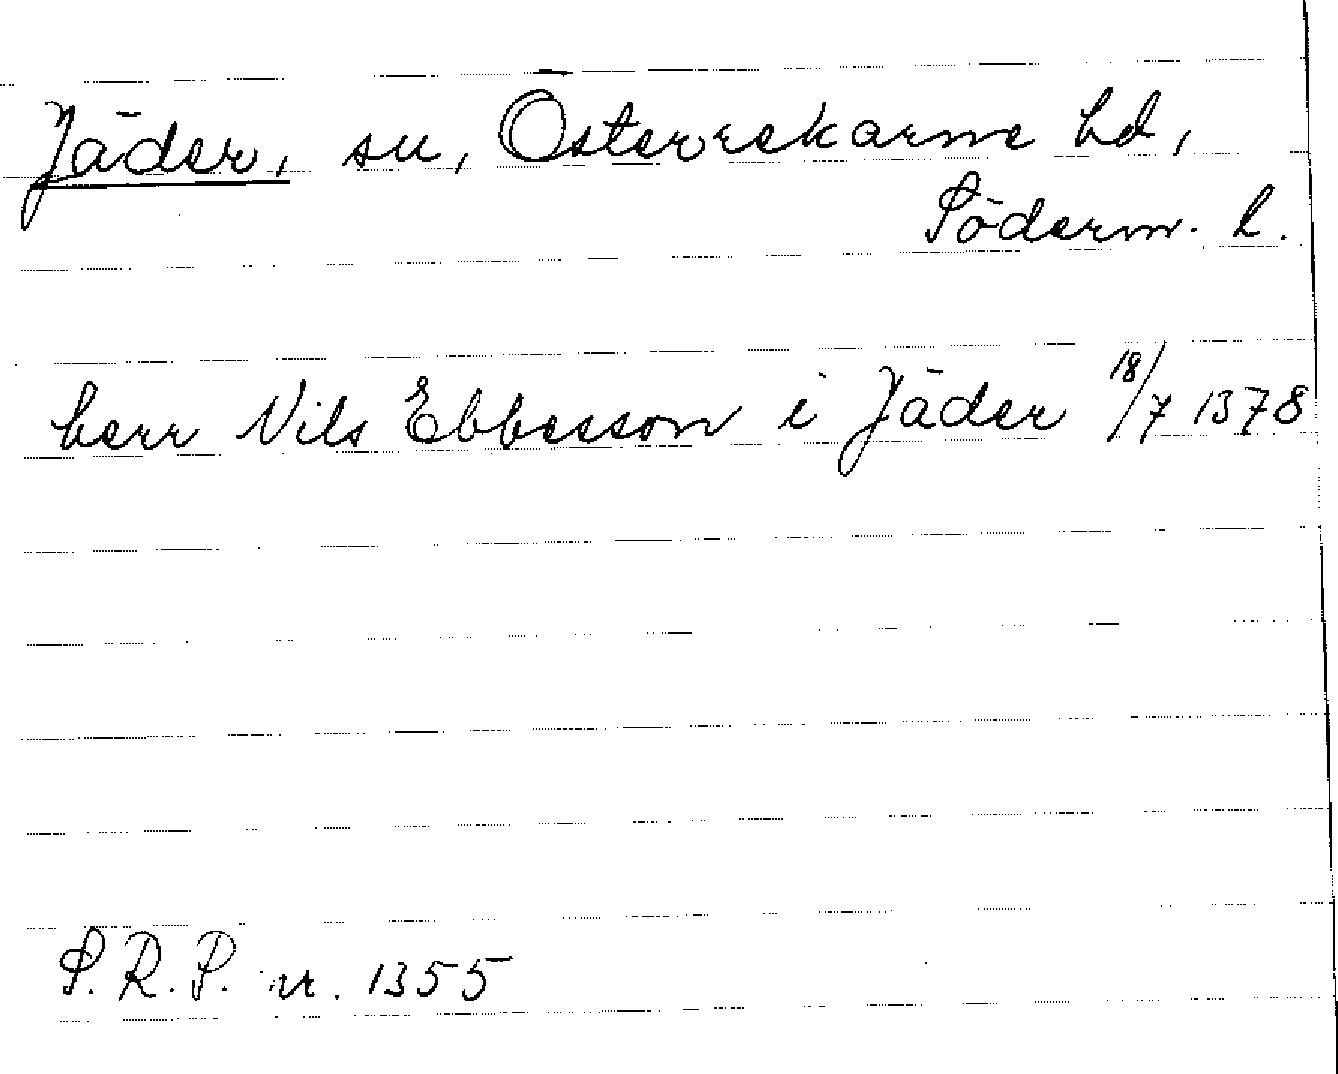 Jäder, sn, Österrekarne hd,
Söderm. l.
herr Nils Ebbesson i Jäder 18/7 1378
S.R.P. nr. 1355